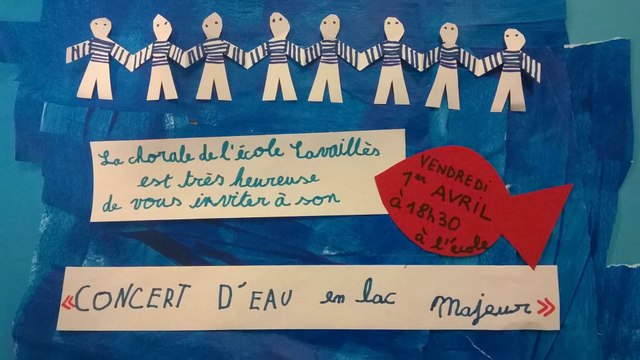 La chorale de l'école Lavaillès
est très heureuse
de vous inviter à son
VENDREDI
1er AVRIL
à 18h30
à l'école
« CONCERT D'EAU en lac Majeur »